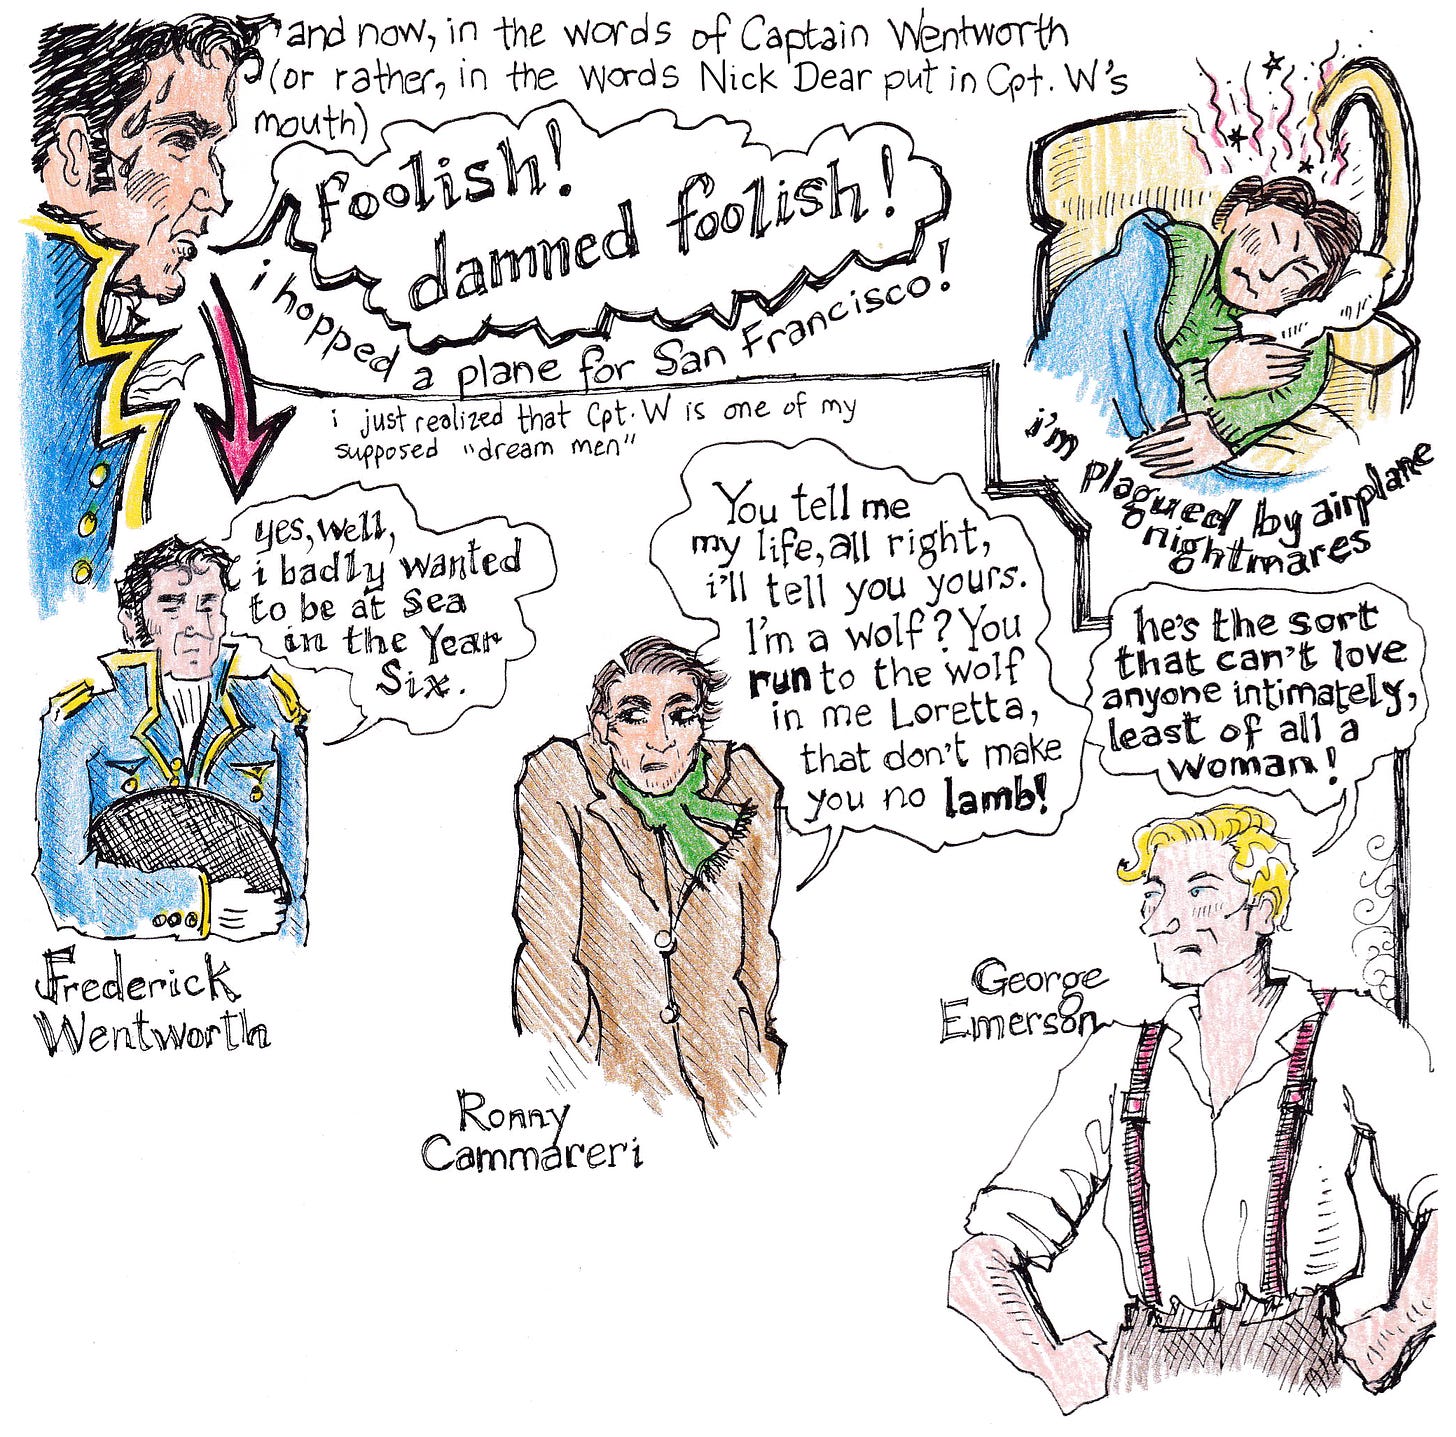 and now, in the words of Captain Wentworth
(or rather, in the words Nick Dear put in Cpt. W's
mouth)
foolish!
damned foolish!
i hopped a plane for San Francisco!
i'm plagued by airplane
nightmares
i just realized that Cpt. W is one of my
supposed "dream men"
yes, well,
i badly wanted
to be at sea
in the Year
Six.
Frederick
Wentworth
You tell me
my life, all right,
i'll tell you yours.
I'm a wolf? You
run to the wolf
in me Loretta,
that don't make
you no lamb!
Ronny
Cammareri
he's the sort
that can't love
anyone intimately,
least of all a
woman!
George
Emerson